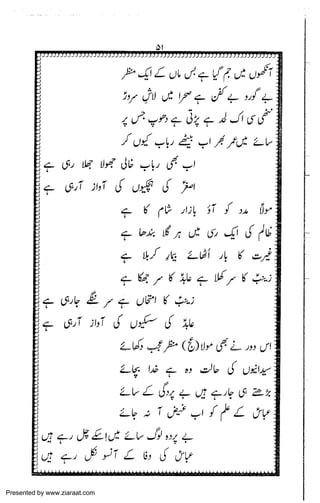 ۵۱
آنکھوں میں جم گیا ہے بس ماں کے ایک منظر
بے گور و بے کفن ہے صحرا میں لاشِ سرورؑ
ننھی سی اک لحد ہے پڑتی ہے دھوپ جس پر
سائے میں عمر بھر اب بیٹھے ربابؑ کیوں کر
اب بھی ربابؑ خالی جھولا جھلا رہی ہے
اصغرؑ کی ہچکیوں کی آواز آرہی ہے
مولاؑ مدد کو آؤ بازار شام کا ہے
ظالم کی ایک رسی میں ہر گلا بندھا ہے
غیرت کا بار اٹھائے بیمارِ کربلا ہے
زینبؑ کا سر کھلا ہے عابدؑ کا سر جھکا ہے
زینبؑ کا امتحاں ہے سر ننگے جارہی ہے
عابدؑ کی سسکیوں کی آواز آرہی ہے
اس دور نے بھی مولا (عج) منظر عجب دکھائے
سیدانیوں کی حالت وہ ہے خدا بچائے
بڑھتے ہی جارہے ہیں بے پردگی کے سائے
عباسؑ کے علم کو اب غیض آ نہ جائے
بے پردہ لوگ سائے میں اسکے چل رہے ہیں
عباسؑ کی وفا کے آنسو نکل رہے ہیں
Presented by www.ziaraat.com